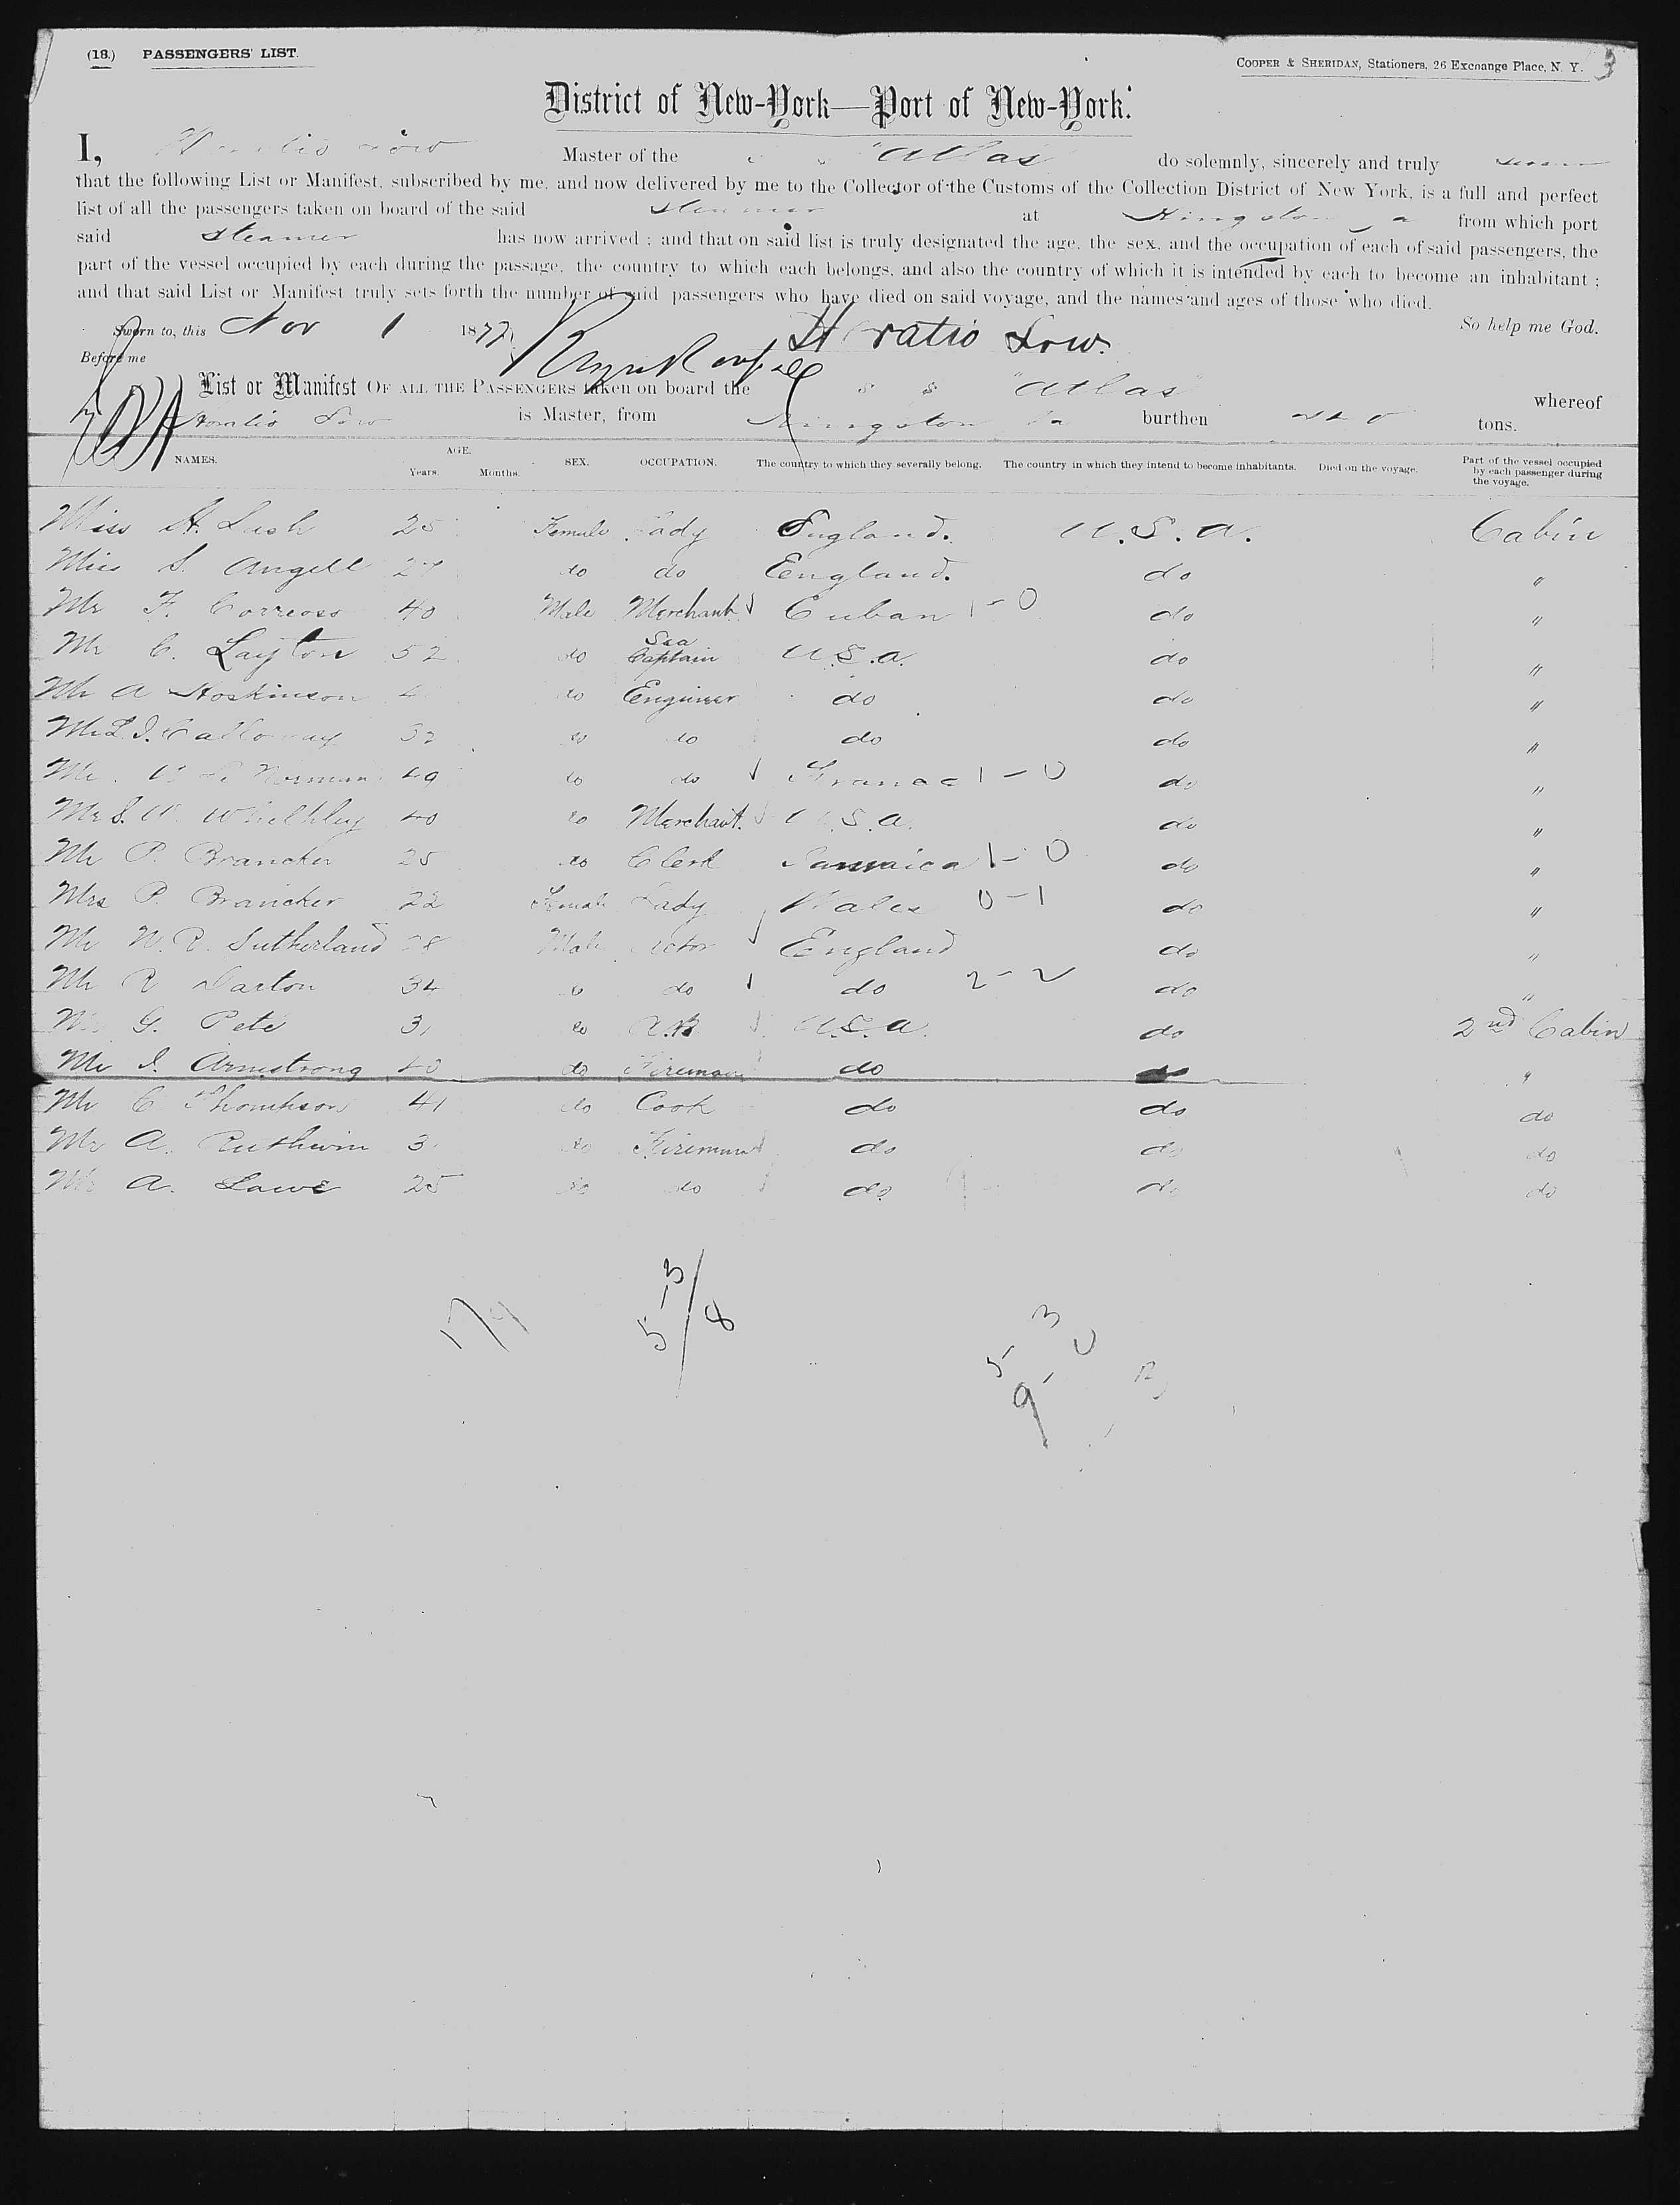 (18.) PASSENGERS' LIST. COOPER & SHERIDAN, Stationers, 26 Exchange Place, N. Y. 3
District of New-York—Port of New-York.
I, Horatio Low Master of the "Atlas" do solemnly, sincerely and truly swear
that the following List or Manifest, subscribed by me, and now delivered by me to the Collector of the Customs of the Collection District of New York, is a full and perfect
list of all the passengers taken on board of the said steamer at Kingston Ja from which port
said steamer has now arrived: and that on said list is truly designated the age, the sex, and the occupation of each of said passengers, the
part of the vessel occupied by each during the passage, the country to which each belongs, and also the country of which it is intended by each to become an inhabitant;
and that said List or Manifest truly sets forth the number of said passengers who have died on said voyage, and the names and ages of those who died.
So help me God.
Sworn to, this Nov 1 1877 Horatio Low.
Before me
List or Manifest OF ALL THE PASSENGERS taken on board the S S "Atlas" whereof
Horatio Low is Master, from Kingston Ja burthen tons.
NAMES. AGE. Years. Months. SEX. OCCUPATION. The country to which they severally belong. The country in which they intend to become inhabitants. Died on the voyage. Part of the vessel occupied by each passenger during the voyage.
Miss H. Lush 25 Female Lady England. U.S.A. Cabin
Miss S. Angell 27 do do England. do "
Mr F. Correoso 40 Male Merchant Cuban 1-0 do "
Mr C. Layton 52 do Sea Captain U.S.A. do "
Mr A Hoskinson do Engineer do do "
Mr L I. Calloway 32 do do do do "
Mr. Norman 49 do do 1-0 do "
Mr S. W. 40 do Merchant. U.S.A. do "
Mr P. Brancker 25 do Clerk Jamaica 1-0 do "
Mrs P. Brancker 22 Female Lady Wales 0-1 do "
Mr W. R. Sutherland 28 Male Actor England do "
Mr R Darton 34 do do do 2-2 do "
Mr G. Pete U.S.A. do 2nd Cabin
Mr I. Armstrong 40 do Fireman do do "
Mr C Thomhson 41 do Cook do do do
Mr A. do Fireman do do do
Mr A. Lawe 25 do do do do do
17
5-3/8
5-3
9-0